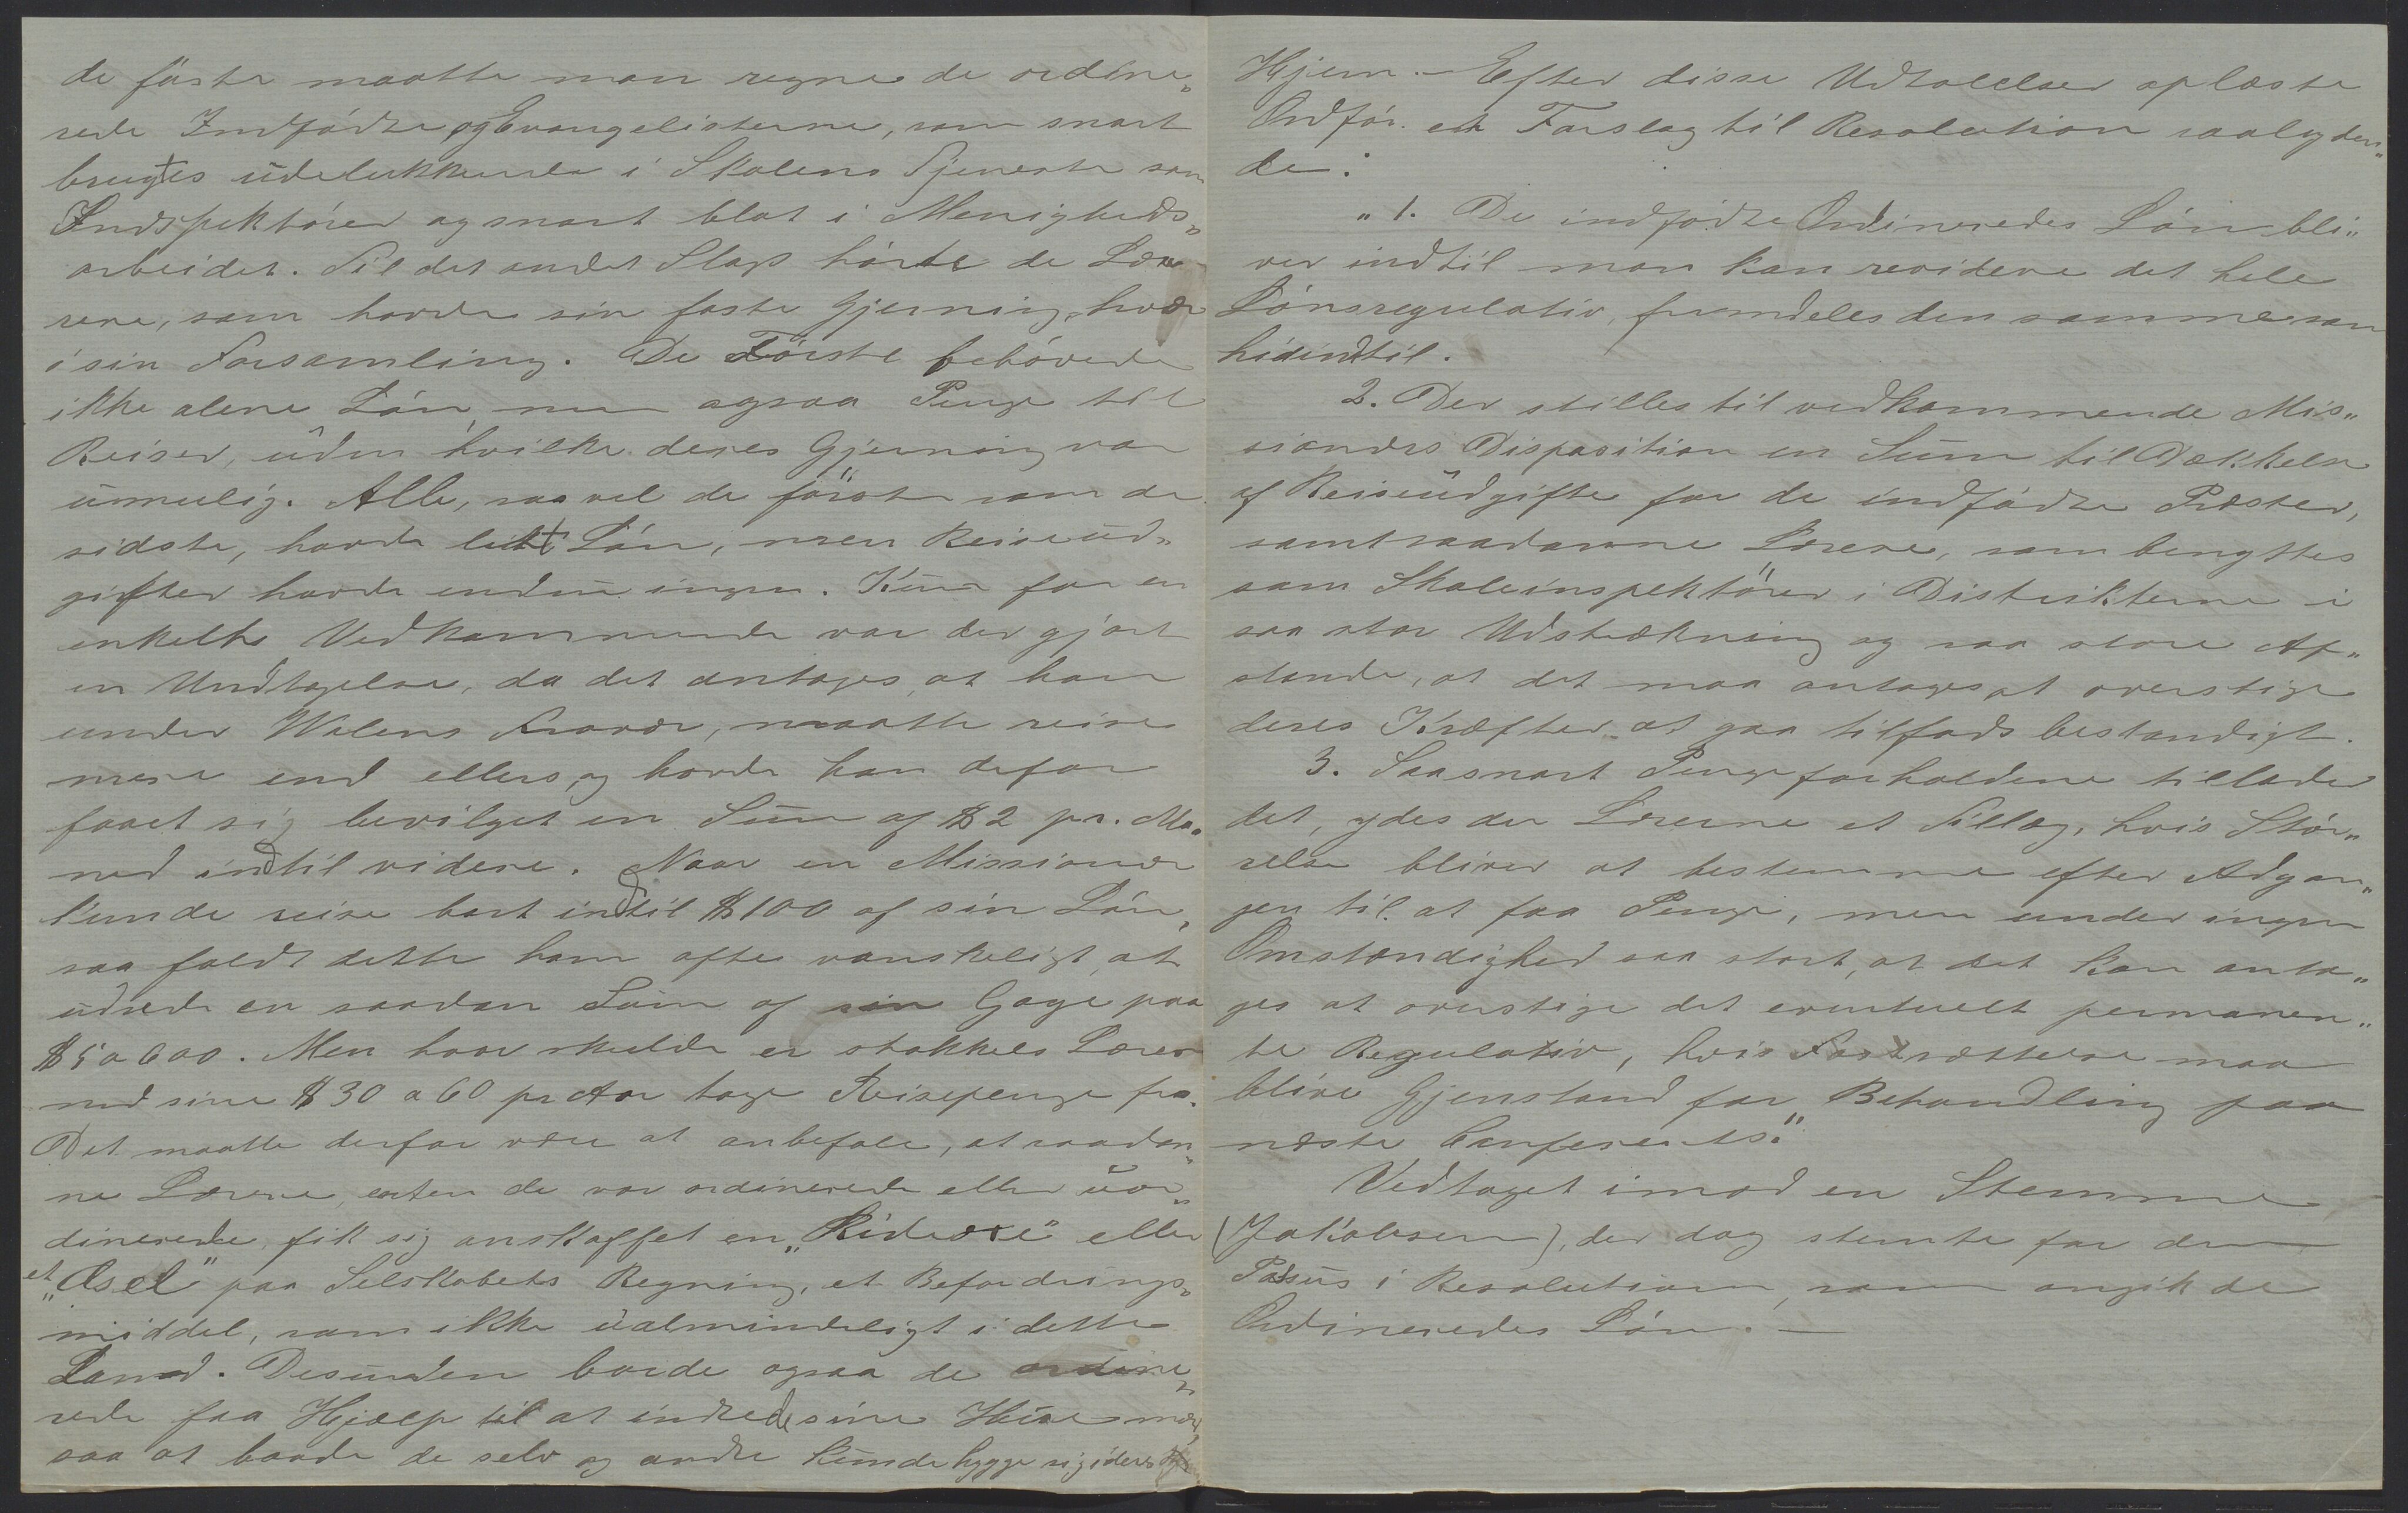 de förste maatte man regne de ordine„
rede Indfødte og Evangelisterne, som snart
brugtes udelukkende i Skolens Tjeneste som
Indspektører og snart blot i Menigheds„
arbeidet. Til det andet Slags hørte de Læ„
rere, som havde sin faste Gjerning hver
i sin Forsamling. De Første behøvede
ikke alene Løn men ogsaa Penge til
Reiser, uden hvilke deres Gjerning var
umulig. Alle, saavel de første som de
sidste, havde lidt Løn, men Reiseud„
gifter havde endnu ingen. Kun for en
enkelts Vedkommende var der gjort
en Undtagelse, da det antoges, at han
under Wilens Fravær, maatte reise
mere end ellers, og havde han defor
faaet sig bevilget en Sum af $2 pr. Maa„
ned indtil videre. Naar en Missionær
kunde reise bort indtil $100 af sin Løn,
saa faldt dette ham ofte vanskeligt, at
udrede en saadan Sum af sin Gage paa
$5 a 600. Men hvor skulde en stakkels Lærer
med sine $30 a 60 pr Aar tage Reisepenge fra.
Det maatte derfor være at anbefale, at saadan„
ne Lærere, enten de var ordinerede eller uor„
dinerede, fik sig anskaffet en „Rideoxe" eller
et „Æsel" paa Selskabets Regning, et Befordrings„
middel, som ikke ualmindeligt i dette
Land. Desuden borde ogsaa de ordine„
rede faa Hjælp til at indrede sine Huse med,
saa at baade de selv og andre kunde hygge sig i deres
Hjem. — Efter disse Udtalelser oplæste
Ordfør. et Forslag til Resolution saalyden„
de:
„1. De indfødte Ordineredes Løn bli„
ver indtil man kan revidere det hele
Lønsregulativ, fremdeles den samme som
hidindtil.
2. Der stilles til vedkommende Mis„
sionærs Disposition en Sum til Dækkelse
af Reiseudgifter for de indfødte Præster,
samt saadanne Lærere, som benyttes
som Skoleinspektører i Distrikterne i
saa stor Udstrækning og saa store Af„
stande, at det maa antages at overstige
deres Kræfter at gaa tilfods bestandigt.
3. Saasnart Pengeforholdene tillader
det, ydes der Lærerne et Tillæg, hvis Stør„
relse bliver at bestemme efter Adgan„
gen til at faa Penge, men under ingen
Omstændighed saa stort, at det kan anta„
ges at overstige det eventuelt permanen„
te Regulativ, hvis Fastsættelse maa
blive Gjenstand for Behandling paa
næste Conferents."
Vedtaget imod en Stemme
(Jakobsen), der dog stemte for den
Passus i Resolutionen, som angik de
Ordineredes Løn. —